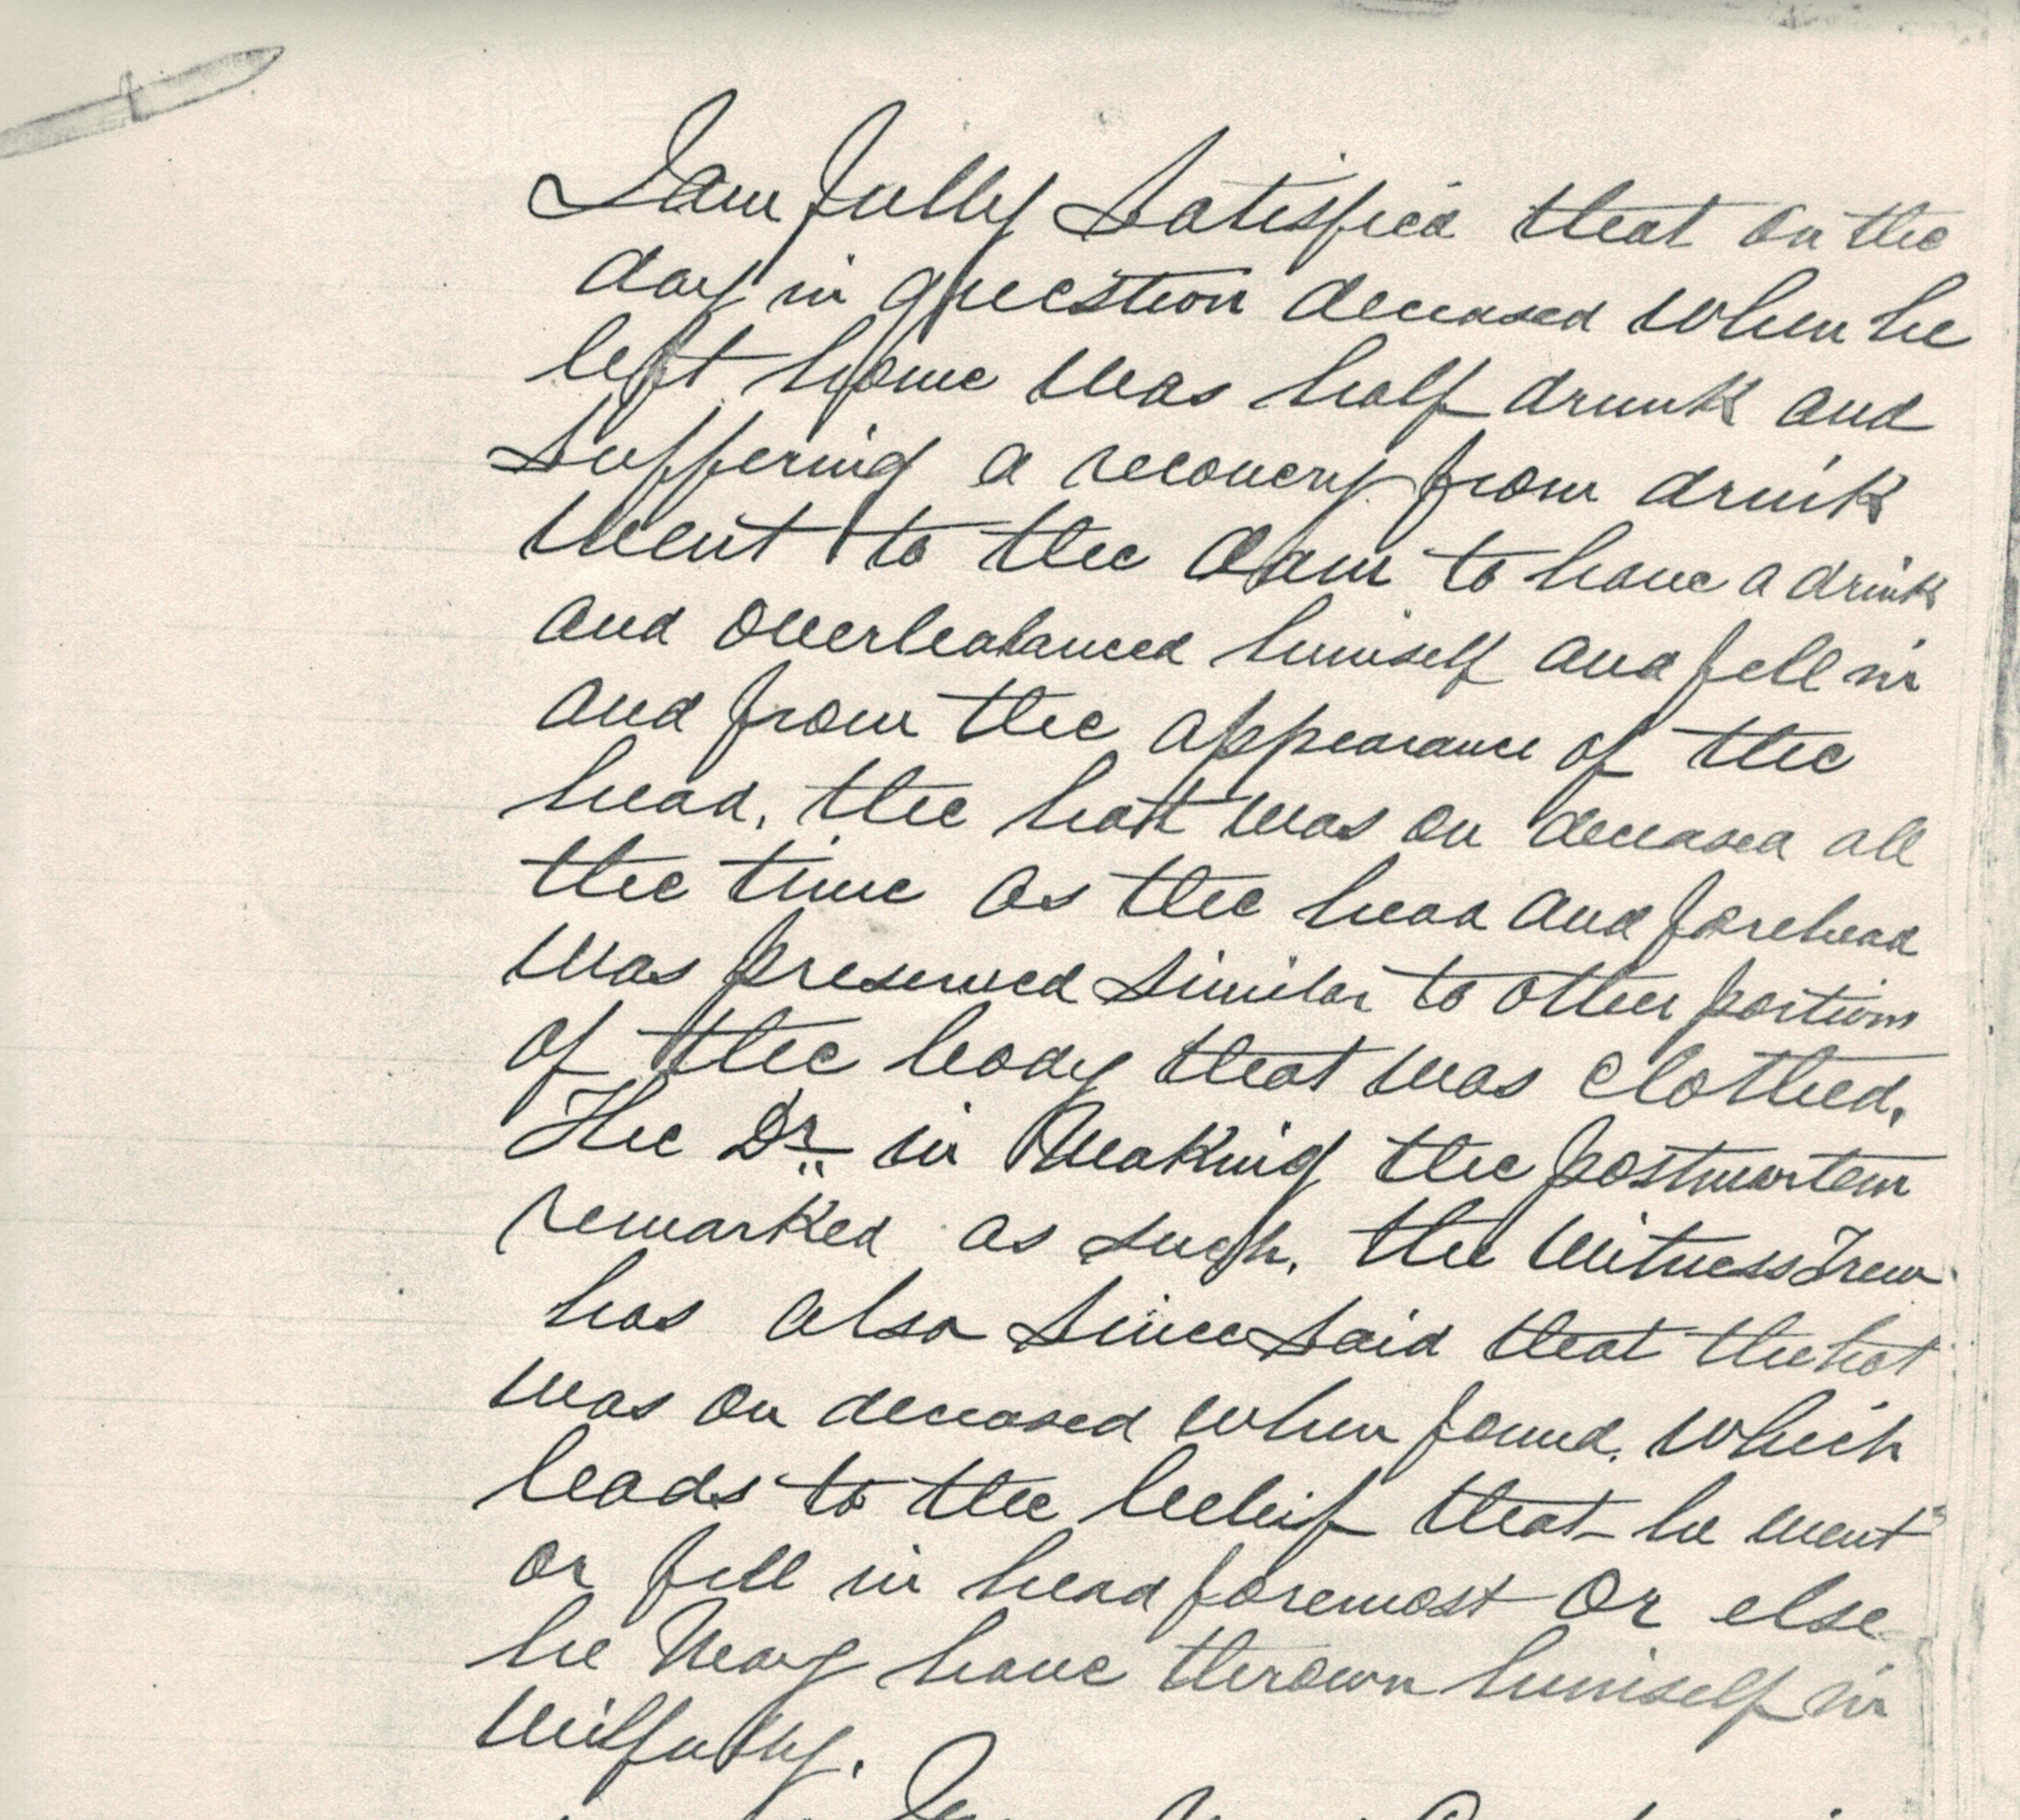 I am fully satisfied that on the
day in question deceased when he
left home was half drunk and
suffering a recovery from drink
went to the dam to have a drink
and overbalanced himself and fell in
and from the appearance of the
head, the hatt was on deceased all
the time as the head and forehead
was preserved similar to other portions
of the body that was clothed.
The Dr in making the postmortem
remarked as such, the witness Trew
has also since said that the hat
was on deceased when found, which
leads to the beleif that he went
or fell in head foremost or else
he may have thrown himself in
wilfully.